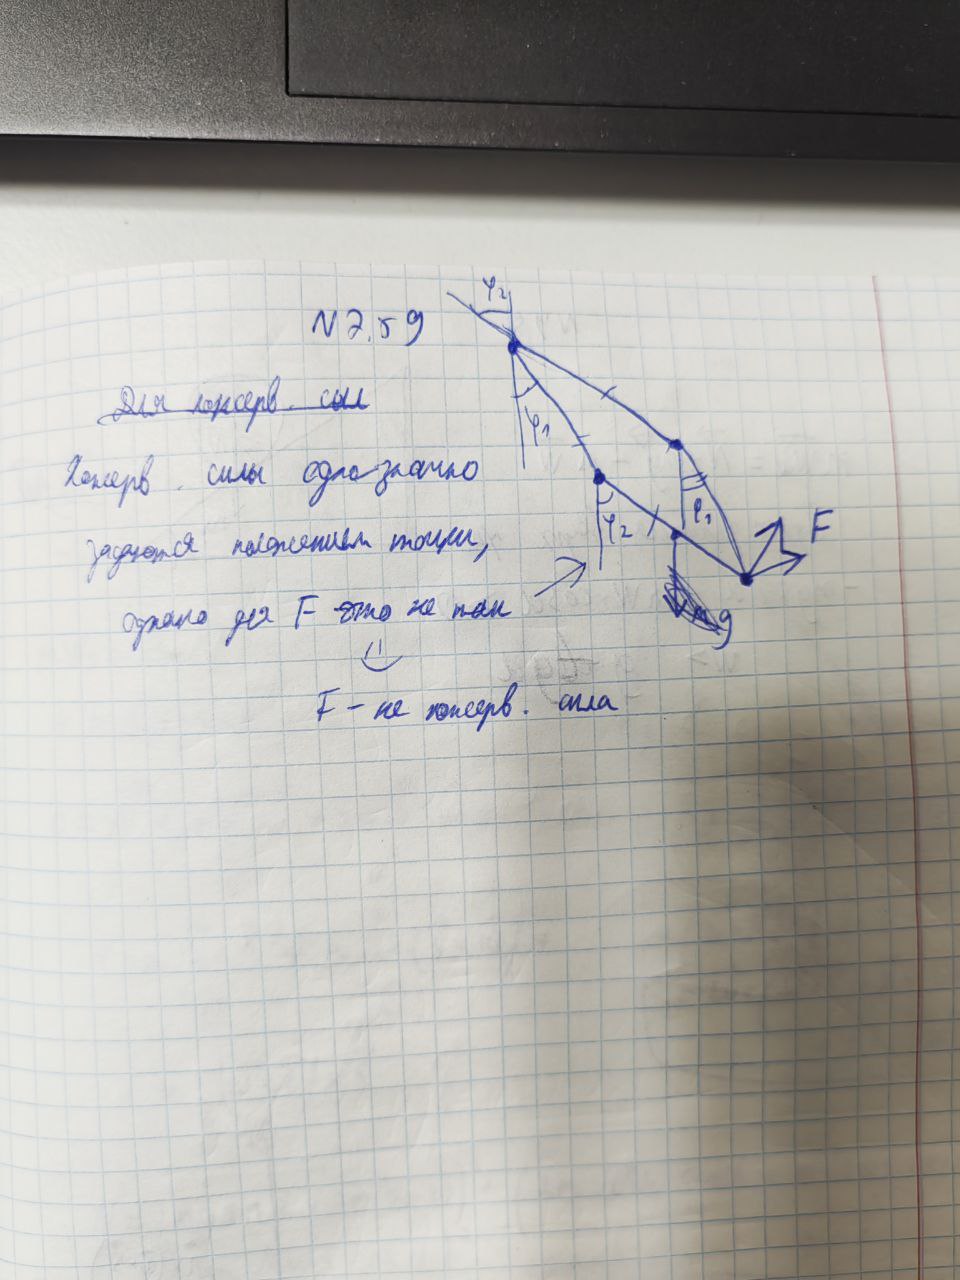 N 7.59
Для консерв. сил
Консерв. силы однозначно
задаются положением точки,
однако для F это не так
⇓
F - не консерв. сила
φ₂
φ₁
φ₂
φ₁
F